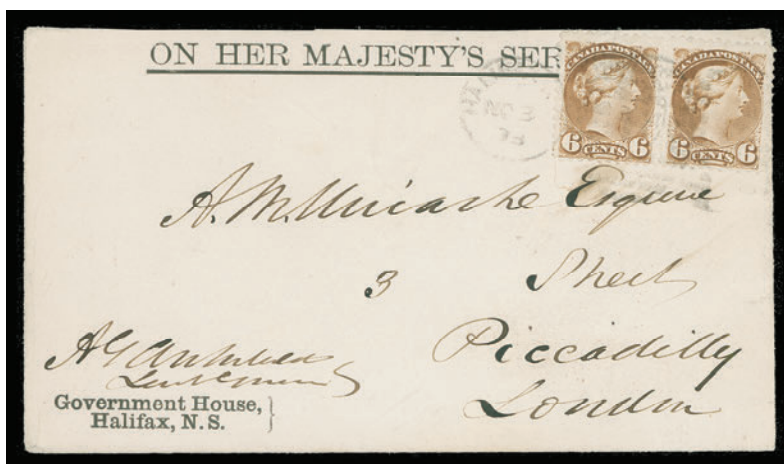 ON HER MAJESTY'S SER
CANADA POSTAGE
6 CENTS 6
CANADA POSTAGE
6 CENTS 6
HALIFAX
A. M. Uniacke Esquire
3 Street
Piccadilly
London
A G Archibald
Lieut Governor
Government House,
Halifax, N. S.